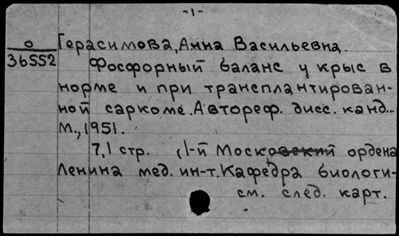 -1-
о
36552
Герасимова, Анна Васильевна.
Фосфорный баланс у крыс в
норме и при трансплантирован-
ной саркоме. Автореф. дисс. канд...
М., 1951.
7,1 стр. (1-й Московский ордена
Ленина мед. ин-т. Кафедра биологи-
см. след. карт.